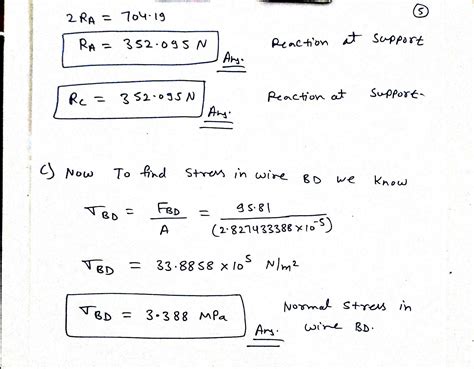 ⑤
2RA = 704.19
RA = 352.095 N Ans. Reaction at support
RC = 352.095N Ans. Reaction at support.
C) Now To find stress in wire BD we know
σBD = FBD / A = 95.81 / (2.827433388 × 10⁻⁵)
σBD = 33.8858 × 10⁵ N/m²
σBD = 3.388 MPa Ans. Normal stress in
wire BD.